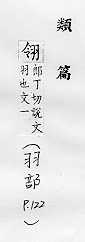 類篇
翎
郎丁切說文
羽也文一
(羽部
P.122)